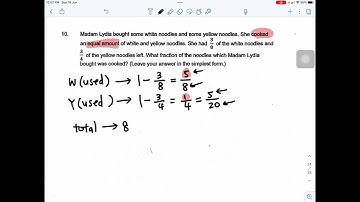 12:07 PM Sun 16 Jun
10. Madam Lydia bought some white noodles and some yellow noodles. She cooked
an equal amount of white and yellow noodles. She had 3/8 of the white noodles and
3/4 of the yellow noodles left. What fraction of the noodles which Madam Lydia
bought was cooked? (Leave your answer in the simplest form.)
W (used) → 1 - 3/8 = 5/8 ←
Y (used) → 1 - 3/4 = 1/4 = 5/20 ←
total → 8